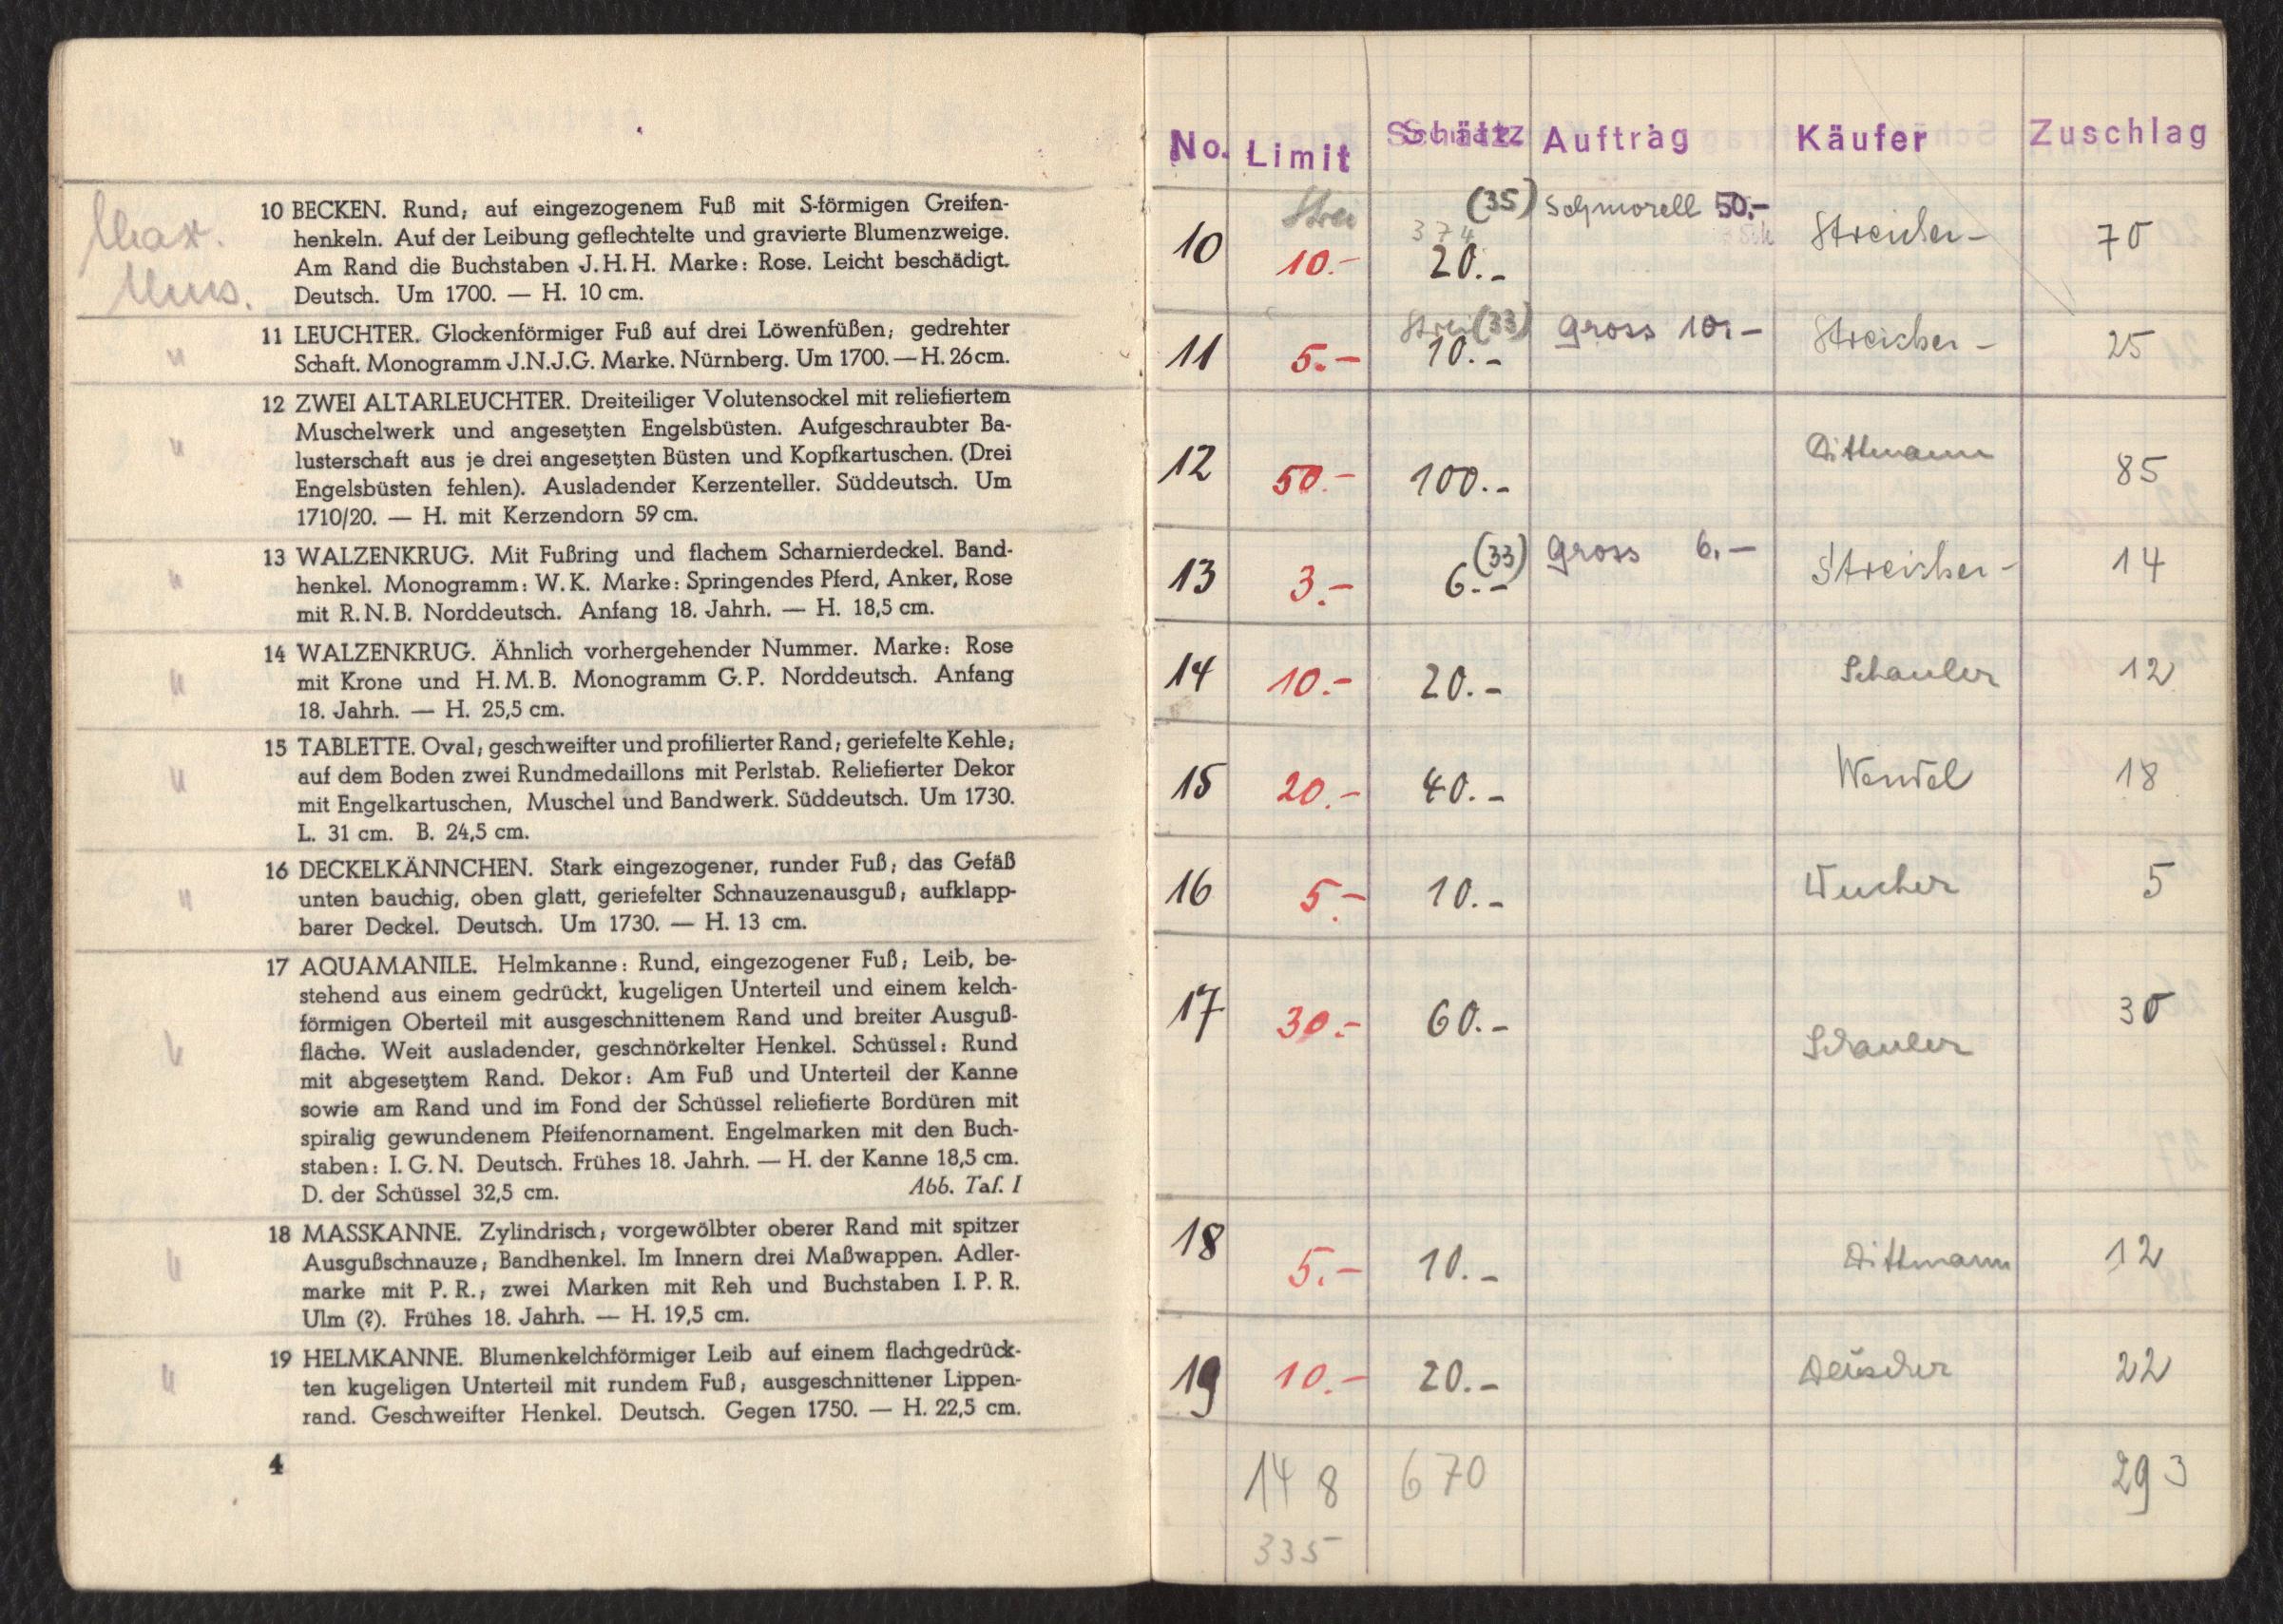 Max.
Mus.
10 BECKEN. Rund, auf eingezogenem Fuß mit S-förmigen Greifen-
henkeln. Auf der Leibung geflechtelte und gravierte Blumenzweige.
Am Rand die Buchstaben J.H.H. Marke: Rose. Leicht beschädigt.
Deutsch. Um 1700. — H. 10 cm.
" 11 LEUCHTER. Glockenförmiger Fuß auf drei Löwenfüßen; gedrehter
Schaft. Monogramm J.N.J.G. Marke. Nürnberg. Um 1700. — H. 26 cm.
" 12 ZWEI ALTARLEUCHTER. Dreiteiliger Volutensockel mit reliefiertem
Muschelwerk und angesetzten Engelsbüsten. Aufgeschraubter Ba-
lusterschaft aus je drei angesetzten Büsten und Kopfkartuschen. (Drei
Engelsbüsten fehlen). Ausladender Kerzenteller. Süddeutsch. Um
1710/20. — H. mit Kerzendorn 59 cm.
" 13 WALZENKRUG. Mit Fußring und flachem Scharnierdeckel. Band-
henkel. Monogramm: W.K. Marke: Springendes Pferd, Anker, Rose
mit R.N.B. Norddeutsch. Anfang 18. Jahrh. — H. 18,5 cm.
" 14 WALZENKRUG. Ähnlich vorhergehender Nummer. Marke: Rose
mit Krone und H.M.B. Monogramm G.P. Norddeutsch. Anfang
18. Jahrh. — H. 25,5 cm.
" 15 TABLETTE. Oval; geschweifter und profilierter Rand; geriefelte Kehle;
auf dem Boden zwei Rundmedaillons mit Perlstab. Reliefierter Dekor
mit Engelkartuschen, Muschel und Bandwerk. Süddeutsch. Um 1730.
L. 31 cm. B. 24,5 cm.
" 16 DECKELKÄNNCHEN. Stark eingezogener, runder Fuß; das Gefäß
unten bauchig, oben glatt, geriefelter Schnauzenausguß; aufklapp-
barer Deckel. Deutsch. Um 1730. — H. 13 cm.
" 17 AQUAMANILE. Helmkanne: Rund, eingezogener Fuß; Leib, be-
stehend aus einem gedrückt, kugeligen Unterteil und einem kelch-
förmigen Oberteil mit ausgeschnittenem Rand und breiter Ausguß-
fläche. Weit ausladender, geschnörkelter Henkel. Schüssel: Rund
mit abgesetztem Rand. Dekor: Am Fuß und Unterteil der Kanne
sowie am Rand und im Fond der Schüssel reliefierte Bordüren mit
spiralig gewundenem Pfeifenornament. Engelmarken mit den Buch-
staben: I.G.N. Deutsch. Frühes 18. Jahrh. — H. der Kanne 18,5 cm.
D. der Schüssel 32,5 cm. Abb. Taf. I
" 18 MASSKANNE. Zylindrisch; vorgewölbter oberer Rand mit spitzer
Ausgußschnauze; Bandhenkel. Im Innern drei Maßwappen. Adler-
marke mit P.R.; zwei Marken mit Reh und Buchstaben I.P.R.
Ulm (?). Frühes 18. Jahrh. — H. 19,5 cm.
" 19 HELMKANNE. Blumenkelchförmiger Leib auf einem flachgedrück-
ten kugeligen Unterteil mit rundem Fuß; ausgeschnittener Lippen-
rand. Geschweifter Henkel. Deutsch. Gegen 1750. — H. 22,5 cm.
4
No. Limit Schätz Auftrag Käufer Zuschlag
Strei (35) Schmorell 50.-
374
10 10.- 20.- Streicher- 70
Strei (33) Gross 10.-
11 5.- 10.- Streicher- 25
12 50.- 100.- Dittmann 85
(33) Gross 6.-
13 3.- 6.- Streicher- 14
14 10.- 20.- Schauler 12
15 20.- 40.- Wendel 18
16 5.- 10.- Wucher 5
17 30.- 60.- Schauler 30
18 5.- 10.- Dittmann 12
19 10.- 20.- Deuscher 22
148 670 293
335